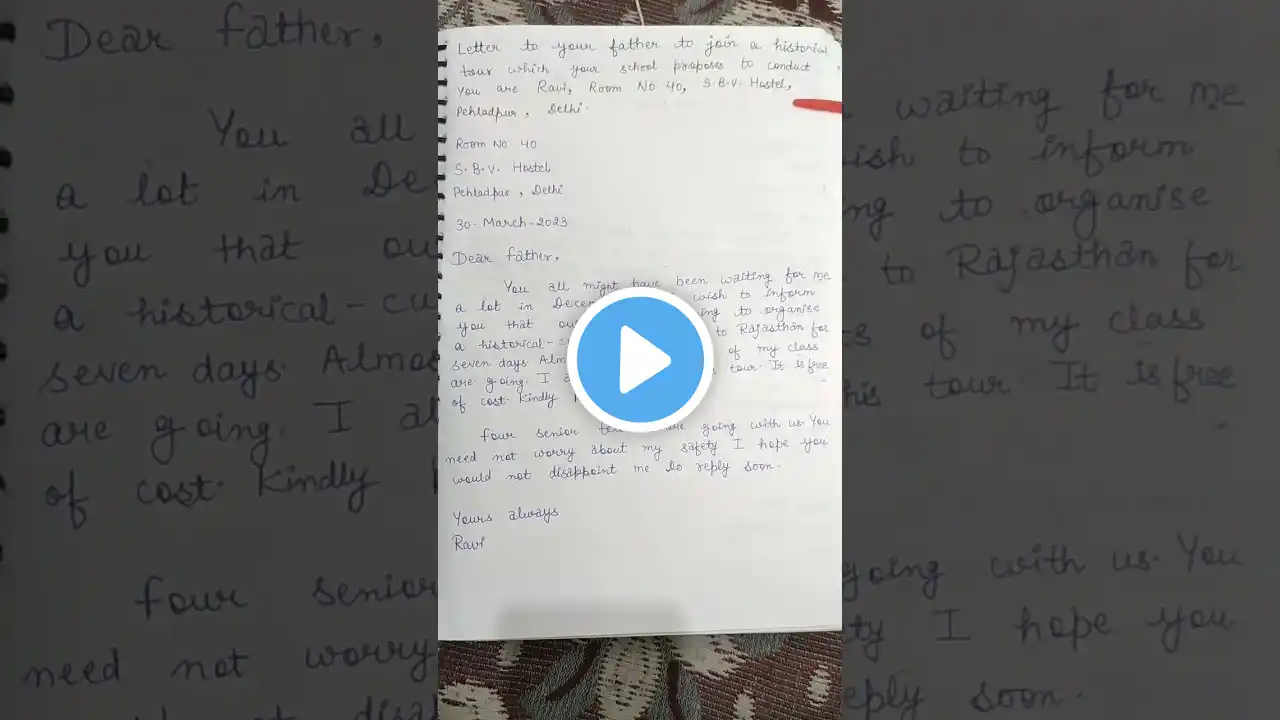 Letter to your father to join a historical
tour which your school proposes to conduct
You are Ravi, Room No 40, S.B.V. Hostel,
Pehladpur, Delhi.
Room No 40
S.B.V. Hostel
Pehladpur, Delhi
30-March-2023
Dear father,
You all might have been waiting for me
a lot in wish to inform
you that to organise
a to Rajasthan for
seven days. of my class
are going. I tour. It is free
of cost. Kindly
four senior are going with us. You
need not worry about my safety I hope you
would not disappoint me Do reply soon.
Yours always
Ravi